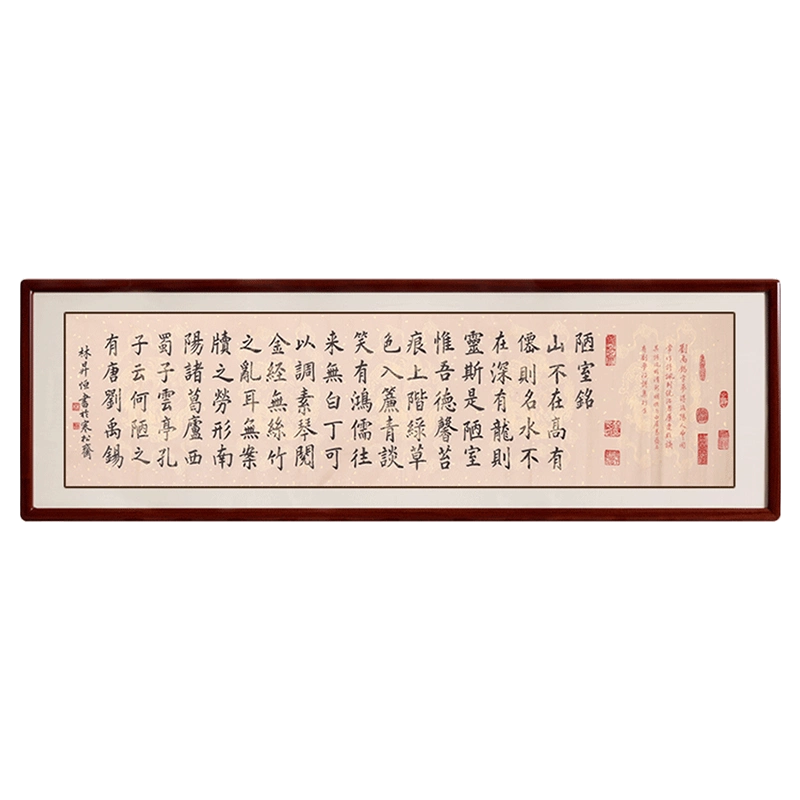 陋室銘
山不在髙有
僊則名水不
在深有龍則
靈斯是陋室
惟吾德馨苔
痕上階綠草
色入簾青談
笑有鴻儒往
来無白丁可
以調素琴閱
金經無絲竹
之亂耳無案
牘之勞形南
陽諸葛廬西
蜀子雲亭孔
子云何陋之
有唐劉禹錫
林昇恒書於寒松齋